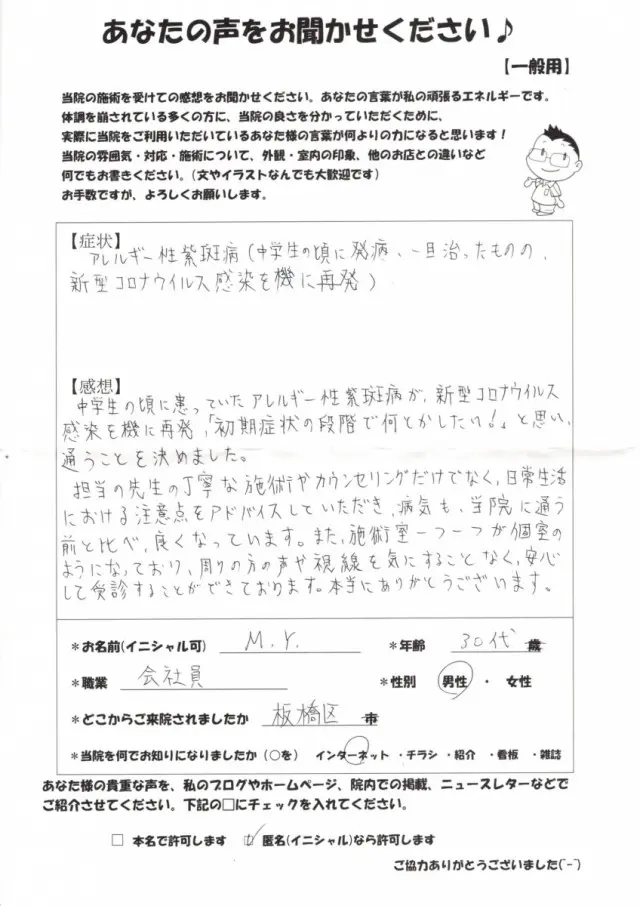 あなたの声をお聞かせください♪
【一般用】
当院の施術を受けての感想をお聞かせください。あなたの言葉が私の頑張るエネルギーです。
体調を崩されている多くの方に、当院の良さを分かっていただくために、
実際に当院をご利用いただいているあなた様の言葉が何よりの力になると思います！
当院の雰囲気・対応・施術について、外観・室内の印象、他のお店との違いなど
何でもお書きください。(文やイラストなんでも大歓迎です)
お手数ですが、よろしくお願いします。
【症状】
アレルギー性紫斑病(中学生の頃に発病、一旦治ったものの、
新型コロナウイルス感染を機に再発)
【感想】
中学生の頃に患っていたアレルギー性紫斑病が、新型コロナウイルス
感染を機に再発、「初期症状の段階で何とかしたい！」と思い、
通うことを決めました。
担当の先生の丁寧な施術やカウンセリングだけでなく、日常生活
における注意点をアドバイスしていただき、病気も、当院に通う
前と比べ、良くなっています。また、施術室一つ一つが個室の
ようになっており、周りの方の声や視線を気にすることなく、安心
して受診することができております。本当にありがとうございます。
＊お名前(イニシャル可) M.Y. ＊年齢 30代 歳
＊職業 会社員 ＊性別 男性・女性
＊どこからご来院されましたか 板橋区 市
＊当院を何でお知りになりましたか (○を) インターネット・チラシ・紹介・看板・雑誌
あなた様の貴重な声を、私のブログやホームページ、院内での掲載、ニュースレターなどで
ご紹介させてください。下記の□にチェックを入れてください。
□ 本名で許可します ☑ 匿名(イニシャル)なら許可します
ご協力ありがとうございました(^-^)